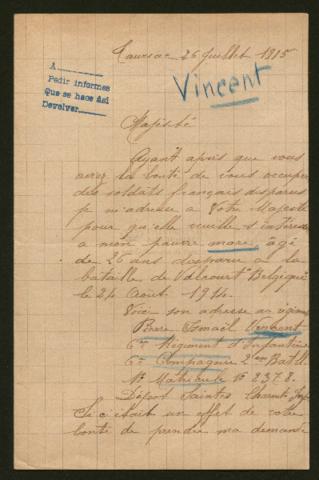 A
Pedir informes
Que se hace Asi
Devolver
26 Juillet 1915
Vincent
Majesté
Ayant appris que vous
avez la bonté de vous occuper
des soldats français disparus
je m'adresse a Votre Majesté
pour qu'elle veuille s'intéresser
a mon pauvre mari, âgé
de 26 ans disparu a la
bataille de Belgique
le 24 Aout 1914
Voici son adresse au régiment
Pierre Ismaël Vincent
6me Régiment d'Infanterie
6e Compagnie 2eme Batll
No Matricule No 2378.
Dépôt Saintes Charente Infr
Si c'était un effet de votre
bonté de prendre ma demande